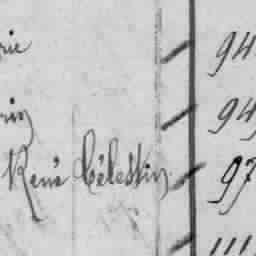 rie 94
rin 94
René Célestin 97
111